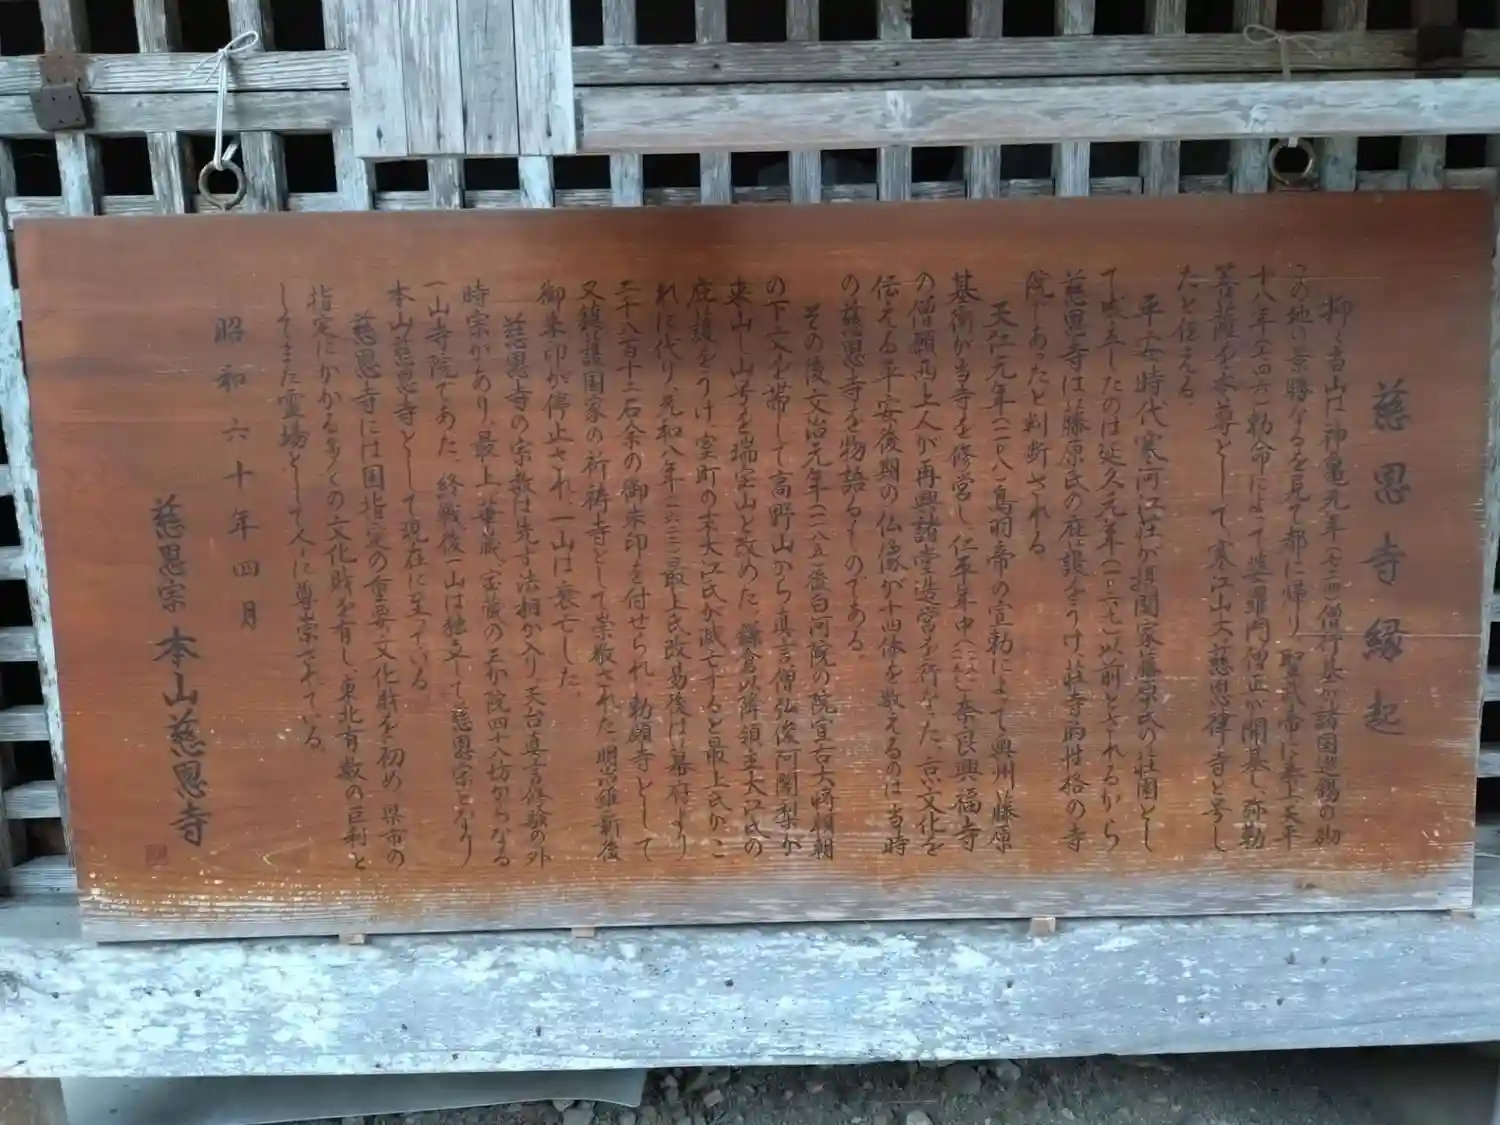 慈恩寺縁起
抑々当山は神亀元年(七二四)僧行基が諸国巡錫の砌
この地の景勝なるを見て都に帰り 聖武帝に奉上 天平
十八年(七四六)勅命によって婆羅門僧正が開基し、弥勒
菩薩を本尊として寒江山大慈恩律寺と号し
たと伝える。
平安時代寒河江荘が摂関家藤原氏の荘園とし
て成立したのは延久元年(一〇六七)以前とされるから
慈恩寺は藤原氏の庇護をうけ、荘寺的性格の寺
院であったと判断される。
天仁元年(一一〇八)鳥羽帝の宣勅によって奥州藤原
基衡が当寺を修営し、仁平年中 奈良興福寺
の僧願西上人が再興諸堂造営を行なった、京文化を
伝える平安後期の仏像が十四体を数えるのは当時
の慈恩寺を物語るものである。
その後文治元年(一一八五)後白河院の院宣右大将頼朝
の下文を帯して高野山から真言僧弘俊阿闍梨が
来山し山号を瑞宝山と改めた、鎌倉以降領主大江氏の
庇護をうけ、室町の末大江氏が滅亡すると最上氏がこ
れに代り、元和八年(一六二二)最上氏改易後は幕府より
二千八百十二石余の御朱印を付せられ、勅願寺として
又鎮護国家の祈祷寺として崇敬された、明治維新後
御朱印が停止され、一山は衰亡した。
慈恩寺の宗教は先ず法相が入り、天台真言修験の外
時宗があり、最上、華蔵、宝蔵の三か院四十八坊からなる
一山寺院であった、終戦後一山は独立して慈恩宗となり
本山慈恩寺として現在に至っている。
慈恩寺には国指定の重要文化財を初め、県市の
指定にかかる多くの文化財を有し、東北有数の巨刹と
してまた霊場として人々に尊崇されている。
昭和六十年四月
慈恩宗 本山慈恩寺